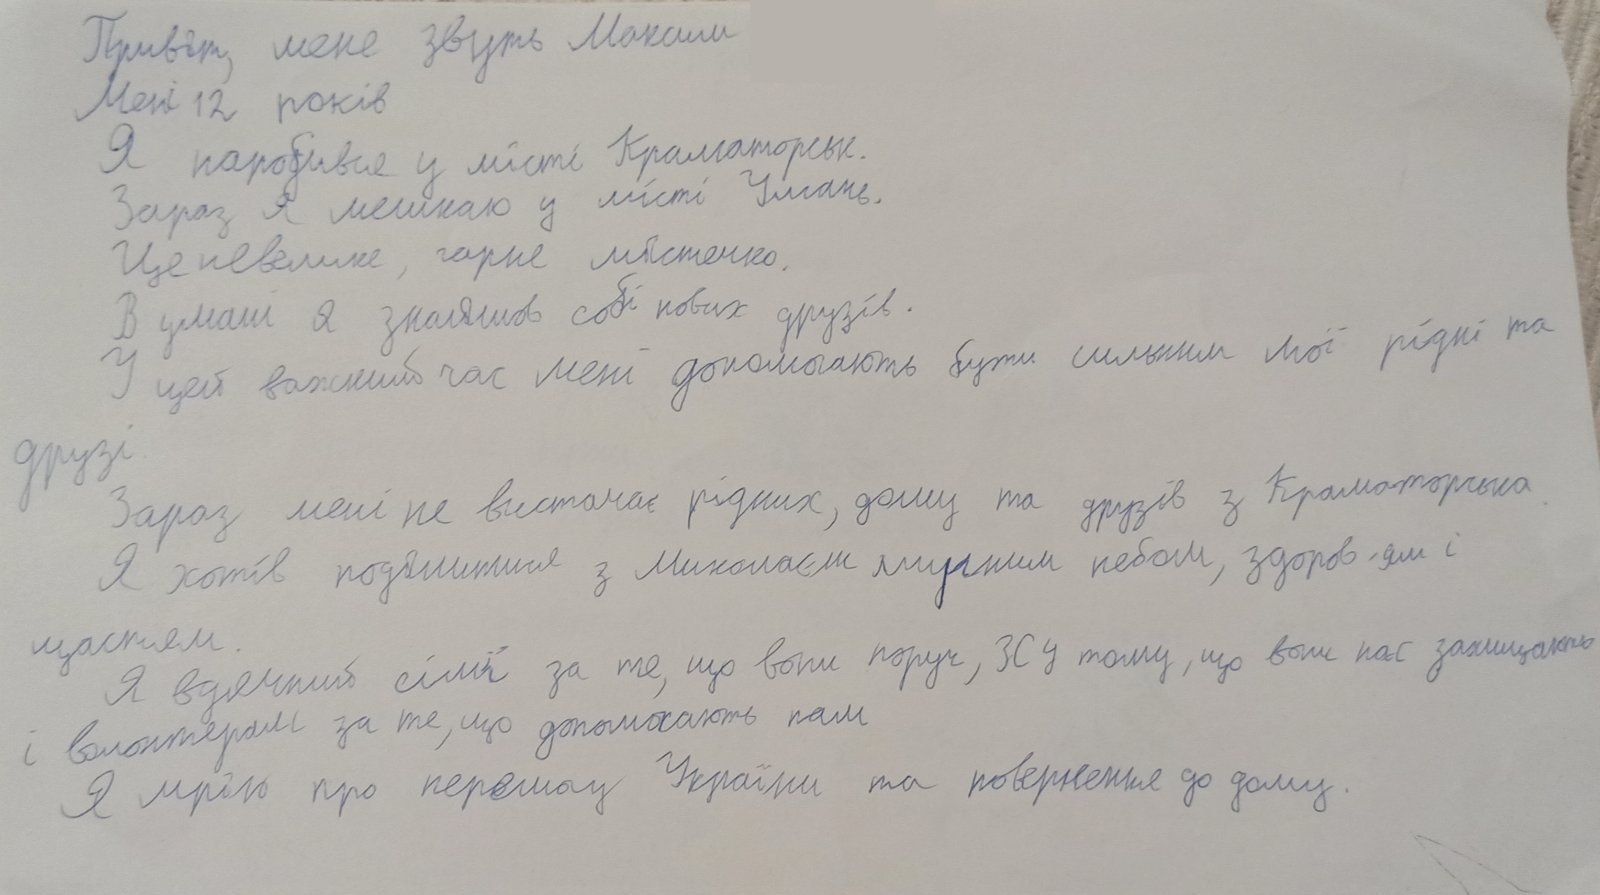 Привіт, мене звуть Максим
Мені 12 років
Я наробився у місті Краматорськ.
Зараз я мешкаю у місті Умань.
Це невелике, гарне містечко.
В умані я знайшов собі нових друзів.
У цей важкий час мені допомогають бути сильним мої рідні та
друзі.
Зараз мені не вистачає рідних, дому та друзів з Краматорська.
Я хотів поділитися з Миколаєм мирним небом, здоров'ям і
щастям.
Я вдячний сім'ї за те, що вони поруч, ЗСУ тому, що вони нас захищають
і волонтерам за те, що допомагають нам
Я мрію про перемогу України та повернення до дому.